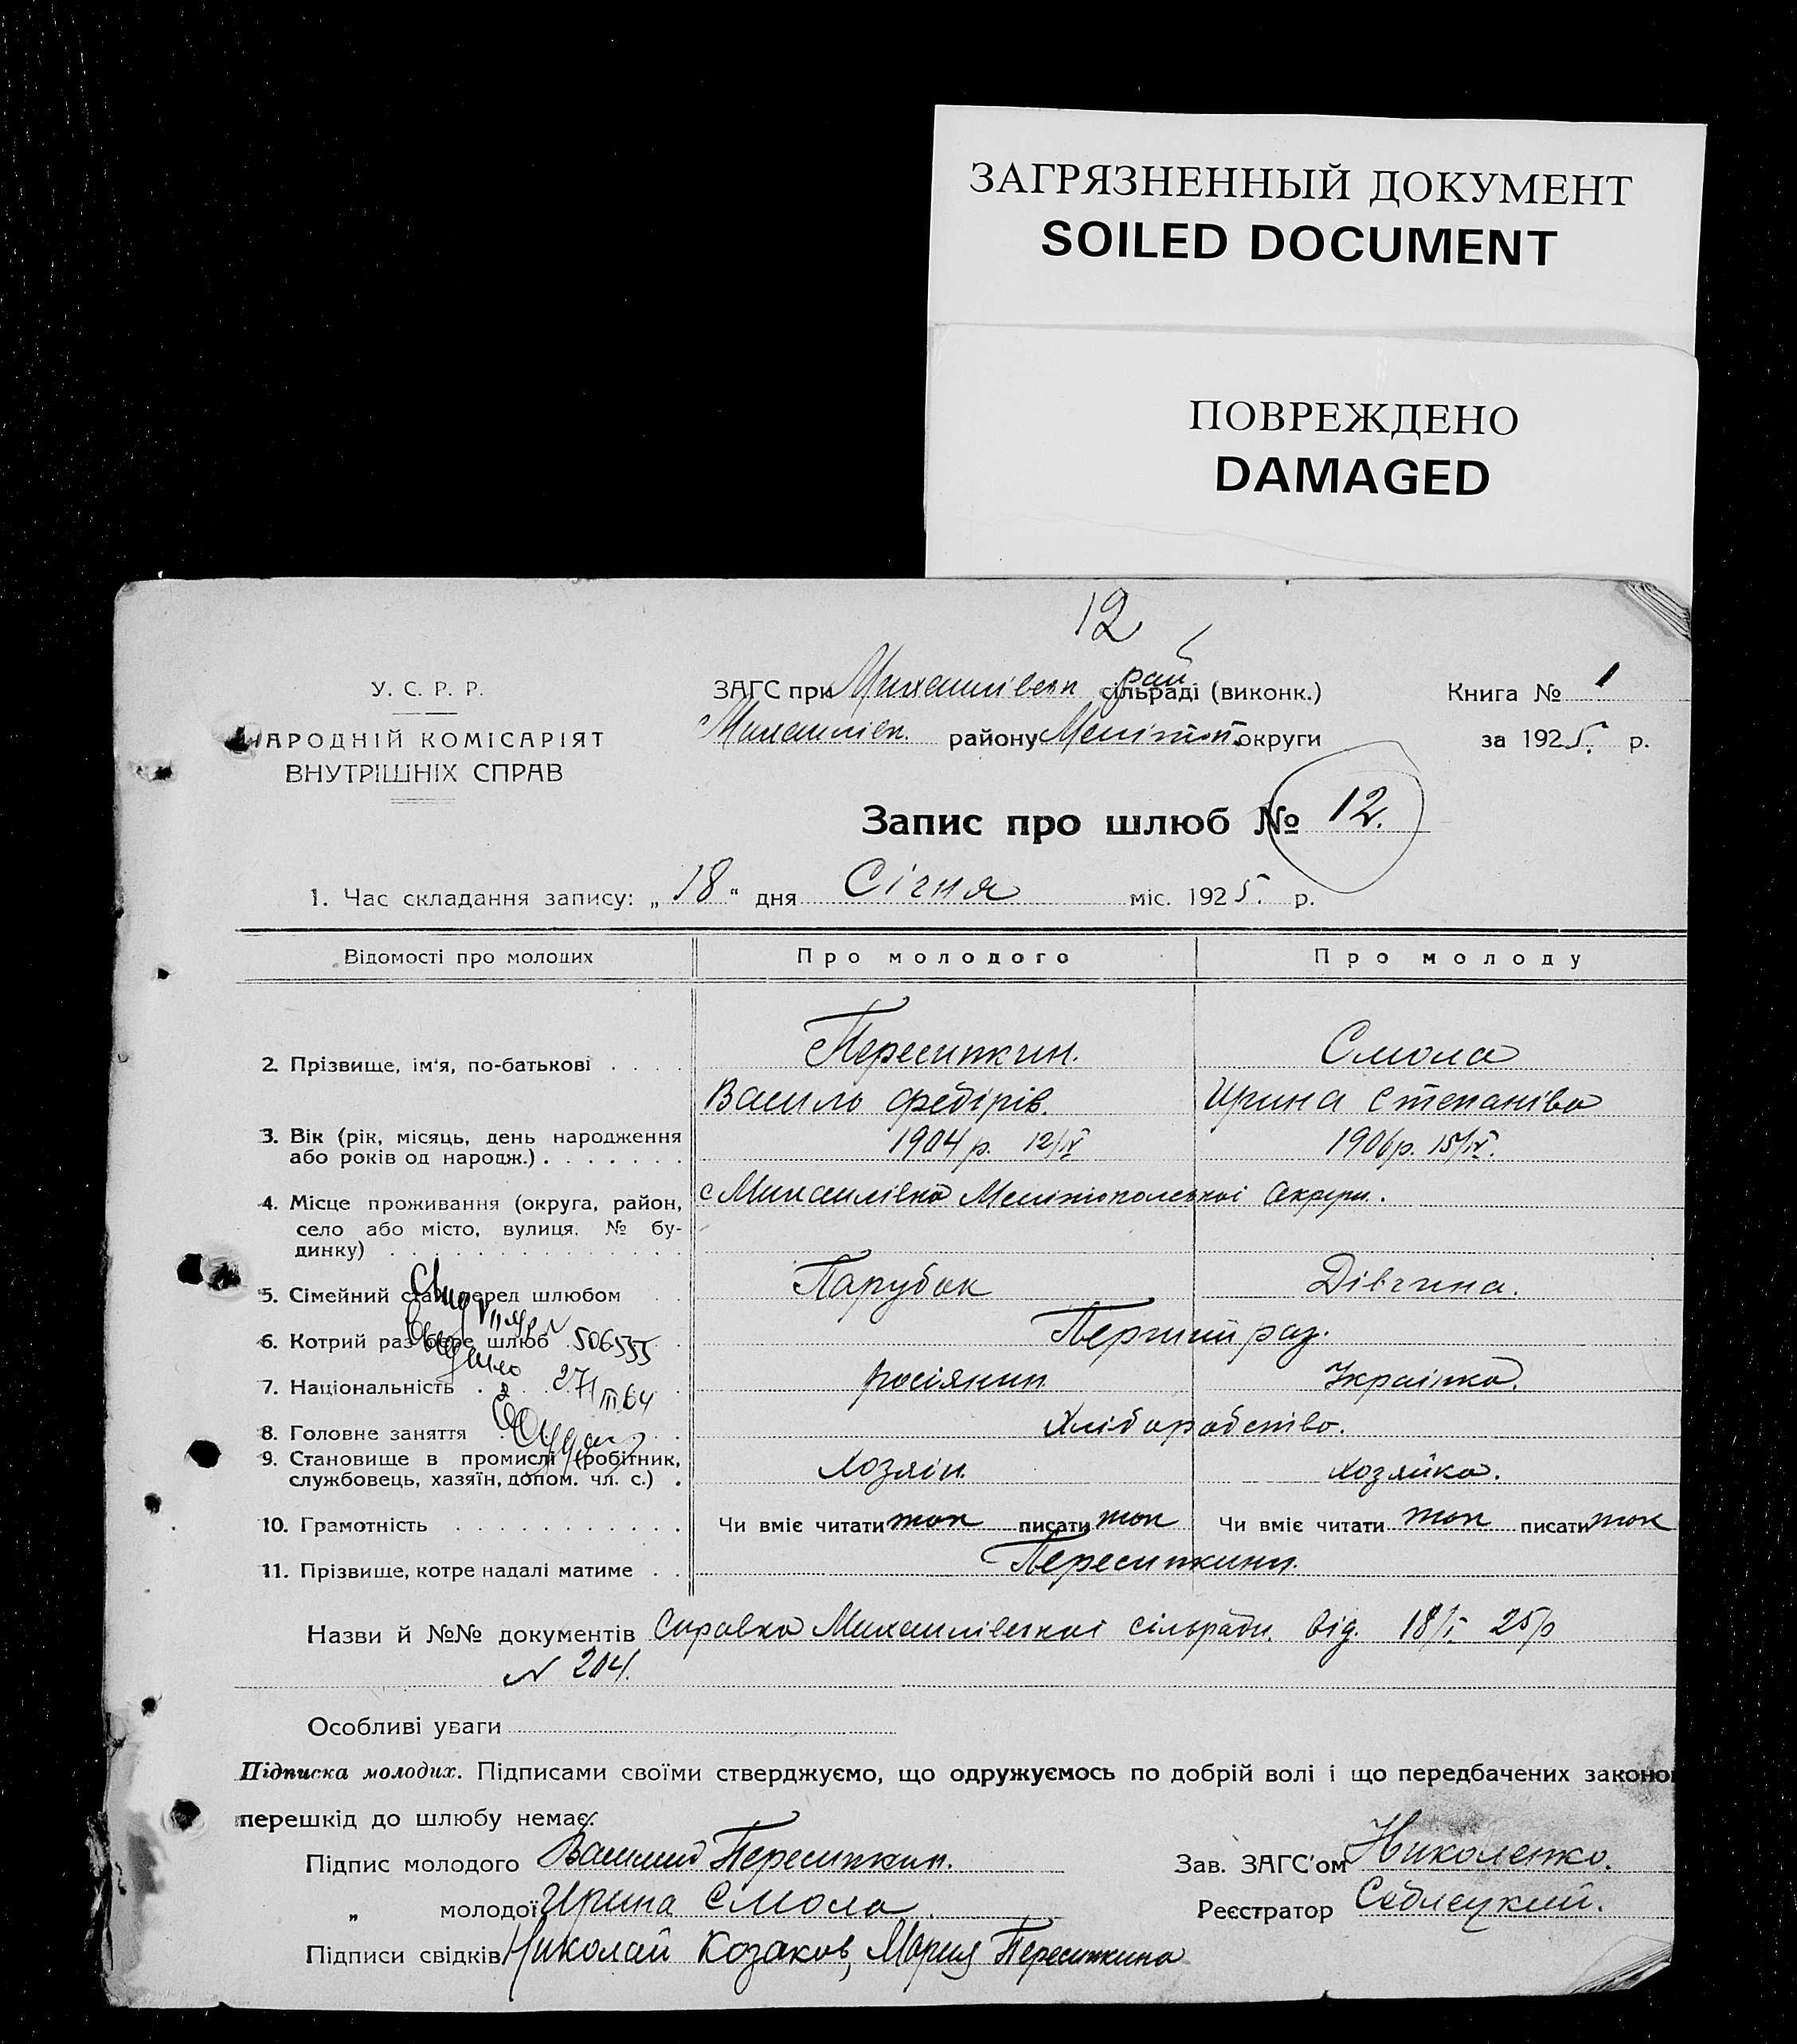 ЗАГРЯЗНЕННЫЙ ДОКУМЕНТ
SOILED DOCUMENT
ПОВРЕЖДЕНО
DAMAGED
12
У. С. Р. Р.
НАРОДНІЙ КОМІСАРІЯТ
ВНУТРІШНІХ СПРАВ
ЗАГС при Михайлівск рай сільраді (виконк.)
Михайлівск. району Мелітоп. округи
Книга № 1
за 1925. р.
Запис про шлюб № 12.
1. Час складання запису: „18“ дня Січня міс. 1925. р.
Відомості про молодих Про молодого Про молоду
2. Прізвище, ім'я, по-батькові Пересипкин. Смола
Василь Федірів. Ирина Степанівна
3. Вік (рік, місяць, день народження або років од народж.) 1904 р. 12/IV 1906 р. 15/IV.
4. Місце проживання (округа, район, село або місто, вулиця. № будинку) с Михайлівка Мелітопольскої Округи.
5. Сімейний стан перед шлюбом Парубок Дівчина.
6. Котрий раз бере шлюб Перший раз.
506555
7. Національність росіянин Українка.
27/III 64
8. Головне заняття Хліборобство.
9. Становище в промислі (робітник, службовець, хазяїн, допом. чл. с.) Хозяін. Хозяйка.
10. Грамотність Чи вміє читати так писати так Чи вміє читати так писати так
11. Прізвище, котре надалі матиме Пересипкини.
Назви й №№ документів Справка Михайлівскоі сільради. від. 18/I 25 р
N 204.
Особливі уваги
Підписка молодих. Підписами своїми стверджуємо, що одружуємось по добрій волі і що передбачених законо
перешкід до шлюбу немає.
Підпис молодого Василий Пересипкин. Зав. ЗАГС'ом Николенко.
„ молодої Ирина Смола. Реєстратор
Підписи свідків Николай Козаков, Мария Пересипкина